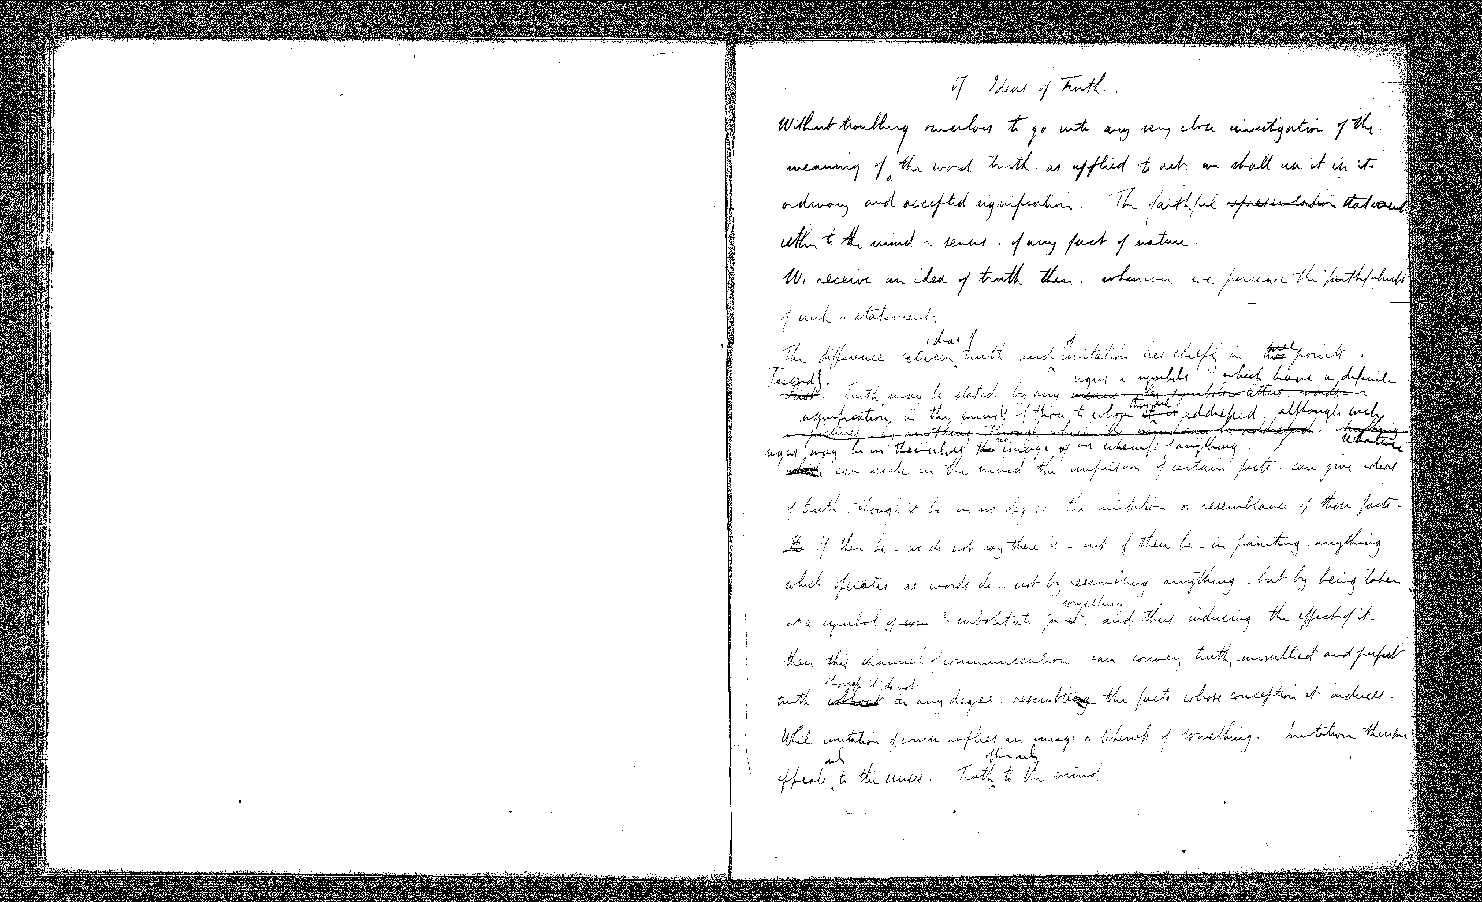 Of Ideas of Truth.
Without troubling ourselves to go into any very close investigation of the
meaning of the word truth as applied to art we shall use it in its
ordinary and accepted signification. The faithful representation statement
either to the mind or senses of any fact of nature.
We receive an idea of truth then, whenever we perceive the faithfulness
of such a statement.
ideas of of
The difference between truth and imitation lies chiefly in three points.
signs or symbols which have a definite
Truth may be stated by any
signification in the minds of those to whom addressed, although such
signs may be in themselves the image or likeness of anything. Whatever
can excite in the mind the conception of certain facts can give ideas
of truth though it be in no degree the imitation or resemblance of those facts.
If there be - we do not say there is - but if there be - in painting anything
which operates as words do - not by resembling anything, but by being taken
something
as a symbol of & substitute for it, and thus inducing the effect of it
then this channel of communication can convey truth unsullied and perfect
though it do not
truth without in any degree resembling the facts whose conception it induces.
While imitation of course implies an image or likeness of something. Imitation therefore
only
appeals to the senses. Truth to the mind